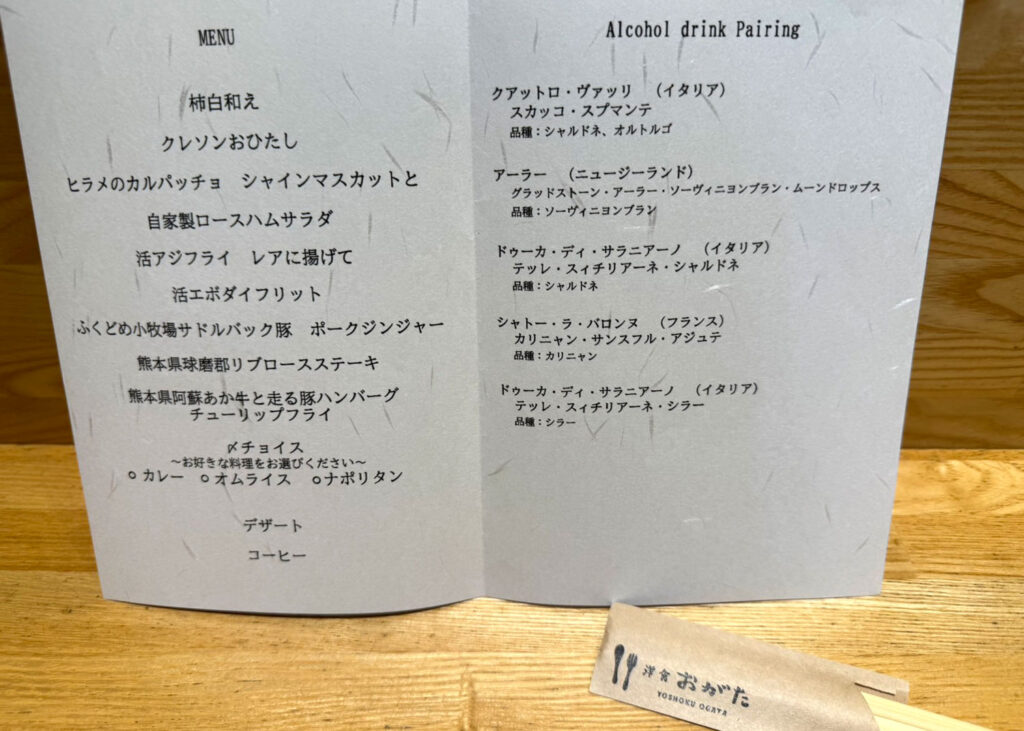 MENU
柿白和え
クレソンおひたし
ヒラメのカルパッチョ シャインマスカットと
自家製ロースハムサラダ
活アジフライ レアに揚げて
活エボダイフリット
ふくどめ小牧場サドルバック豚 ポークジンジャー
熊本県球磨郡リブロースステーキ
熊本県阿蘇あか牛と走る豚ハンバーグ
チューリップフライ
〆チョイス
～お好きな料理をお選びください～
○ カレー ○ オムライス ○ナポリタン
デザート
コーヒー
Alcohol drink Pairing
クアットロ・ヴァッリ （イタリア）
スカッコ・スプマンテ
品種：シャルドネ、オルトルゴ
アーラー （ニュージーランド）
グラッドストーン・アーラー・ソーヴィニヨンブラン・ムーンドロップス
品種：ソーヴィニヨンブラン
ドゥーカ・ディ・サラニアーノ （イタリア）
テッレ・スィチリアーネ・シャルドネ
品種：シャルドネ
シャトー・ラ・バロンヌ （フランス）
カリニャン・サンスフル・アジュテ
品種：カリニャン
ドゥーカ・ディ・サラニアーノ （イタリア）
テッレ・スィチリアーネ・シラー
品種：シラー
洋食 おがた
YOSHOKU OGATA